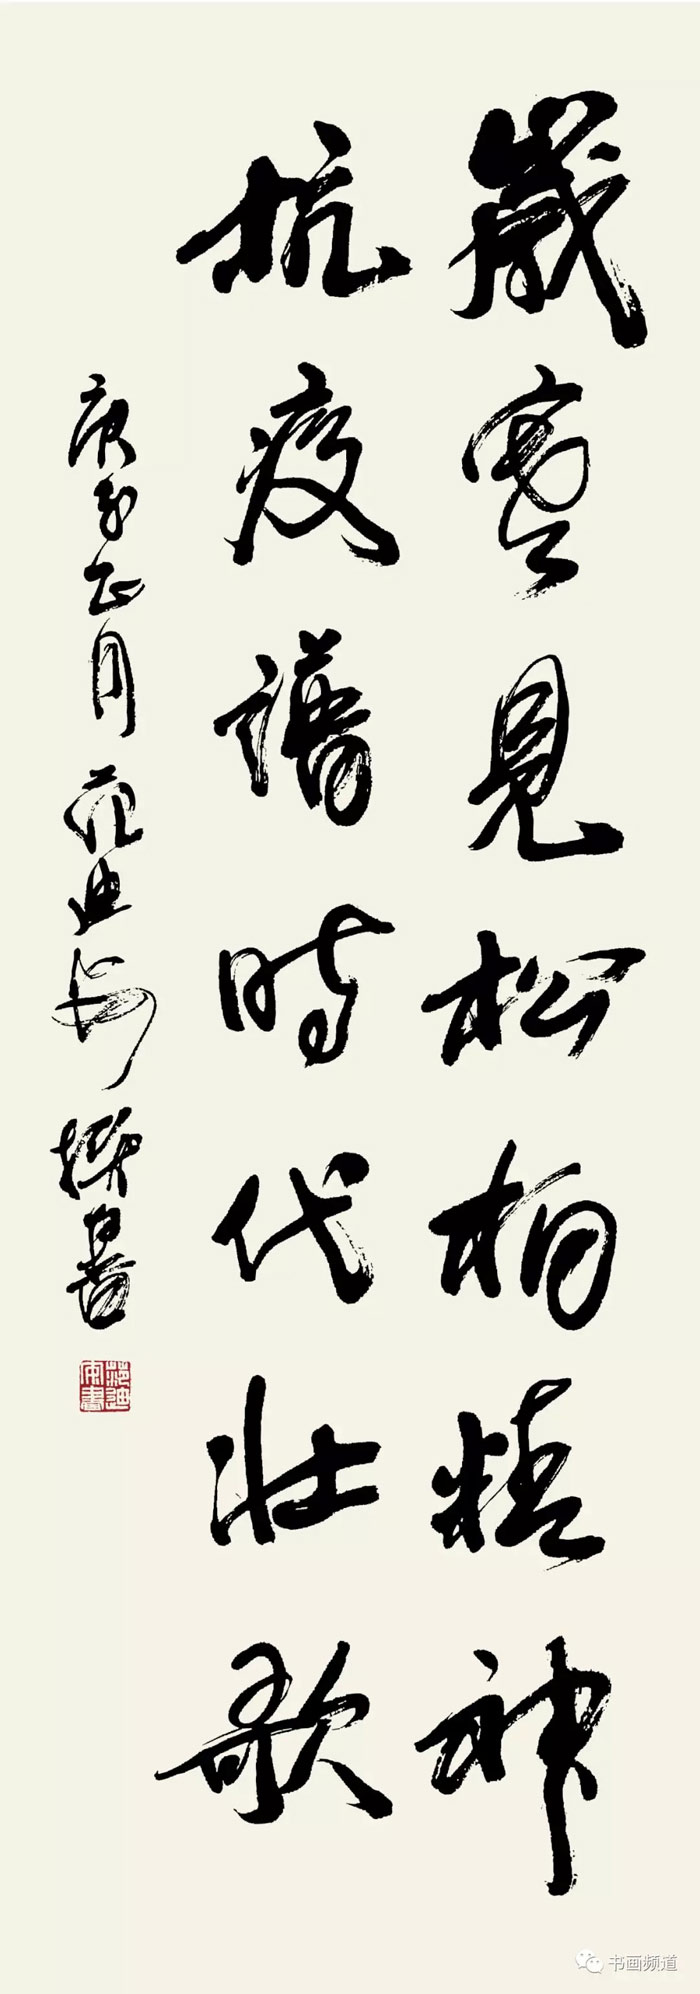 歲寒見松柏精神
抗疫譜時代壯歌
庚子正月范迪安撰書
范迪安書
书画频道